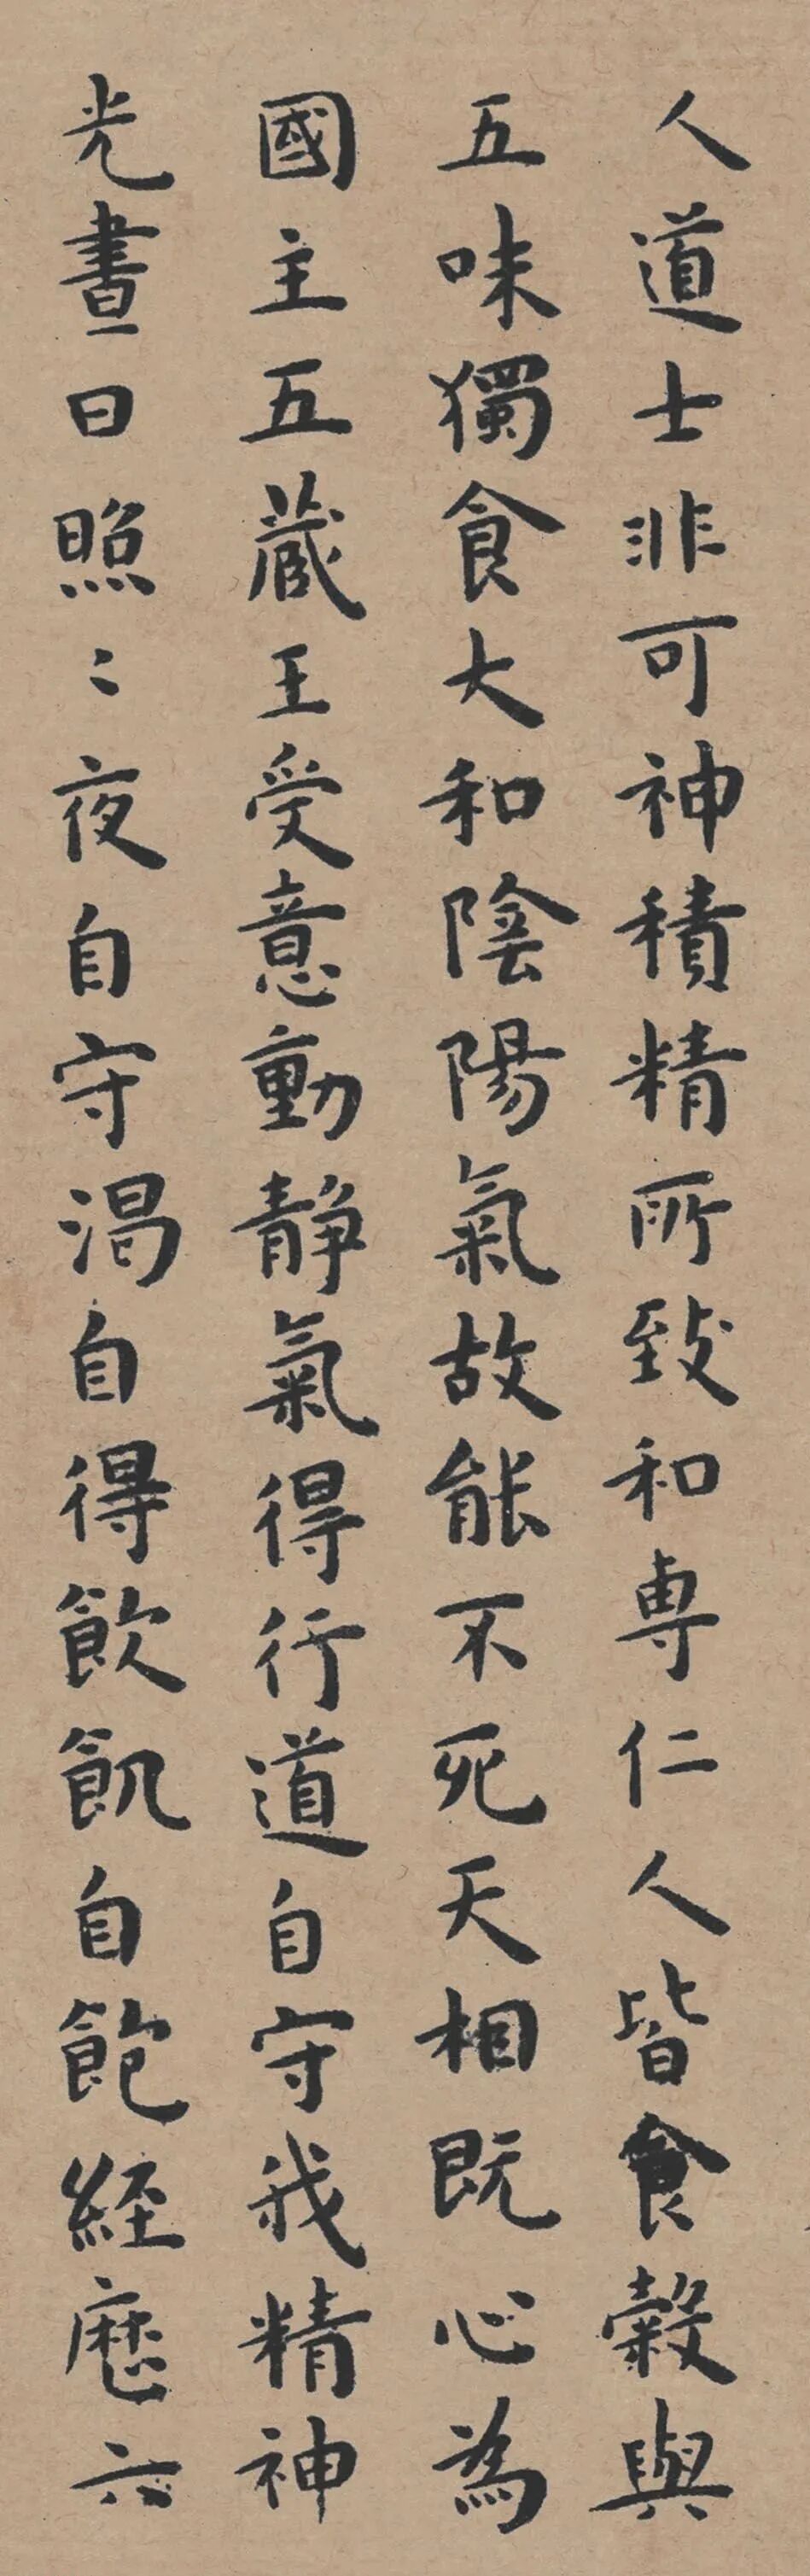 人道士非可神積精所致和専仁人皆食穀與
五味獨食大和陰陽氣故能不死天相既心為
國主五蔵王受意動静氣得行道自守我精神
光晝日照〻夜自守渇自得飲飢自飽経歴六